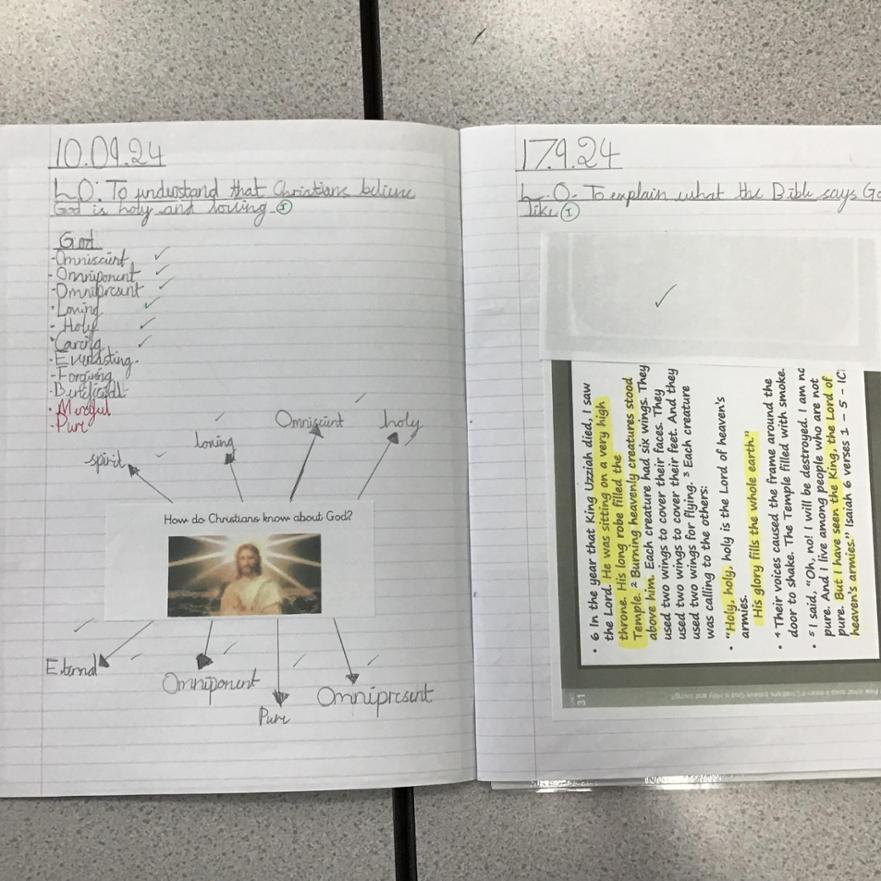 10.09.24
LO: To understand that Christians believe
God is holy and loving.
God
-Omniscient
-Omniponent
-Omnipresent
-Loving
-Holy
-Caring
-Everlasting.
-Forgiving
-Beneficial
-Merciful
-Pure
spirit
loving
Omniscient
holy
How do Christians know about God?
Eternal
Omniponent
Pure
Omnipresent
17.9.24
L.O- To explain what the Bible says Go
like
• 6 In the year that King Uzziah died, I saw
the Lord. He was sitting on a very high
throne. His long robe filled the
Temple. 2 Burning heavenly creatures stood
above him. Each creature had six wings. They
used two wings to cover their faces. They
used two wings to cover their feet. And they
used two wings for flying. 3 Each creature
was calling to the others:
• "Holy, holy, holy is the Lord of heaven's
armies.
His glory fills the whole earth."
• 4 Their voices caused the frame around the
door to shake. The Temple filled with smoke.
• 5 I said, "Oh, no! I will be destroyed. I am no
pure. And I live among people who are not
pure. But I have seen the King, the Lord of
heaven's armies." Isaiah 6 verses 1 - 5 - IC
31